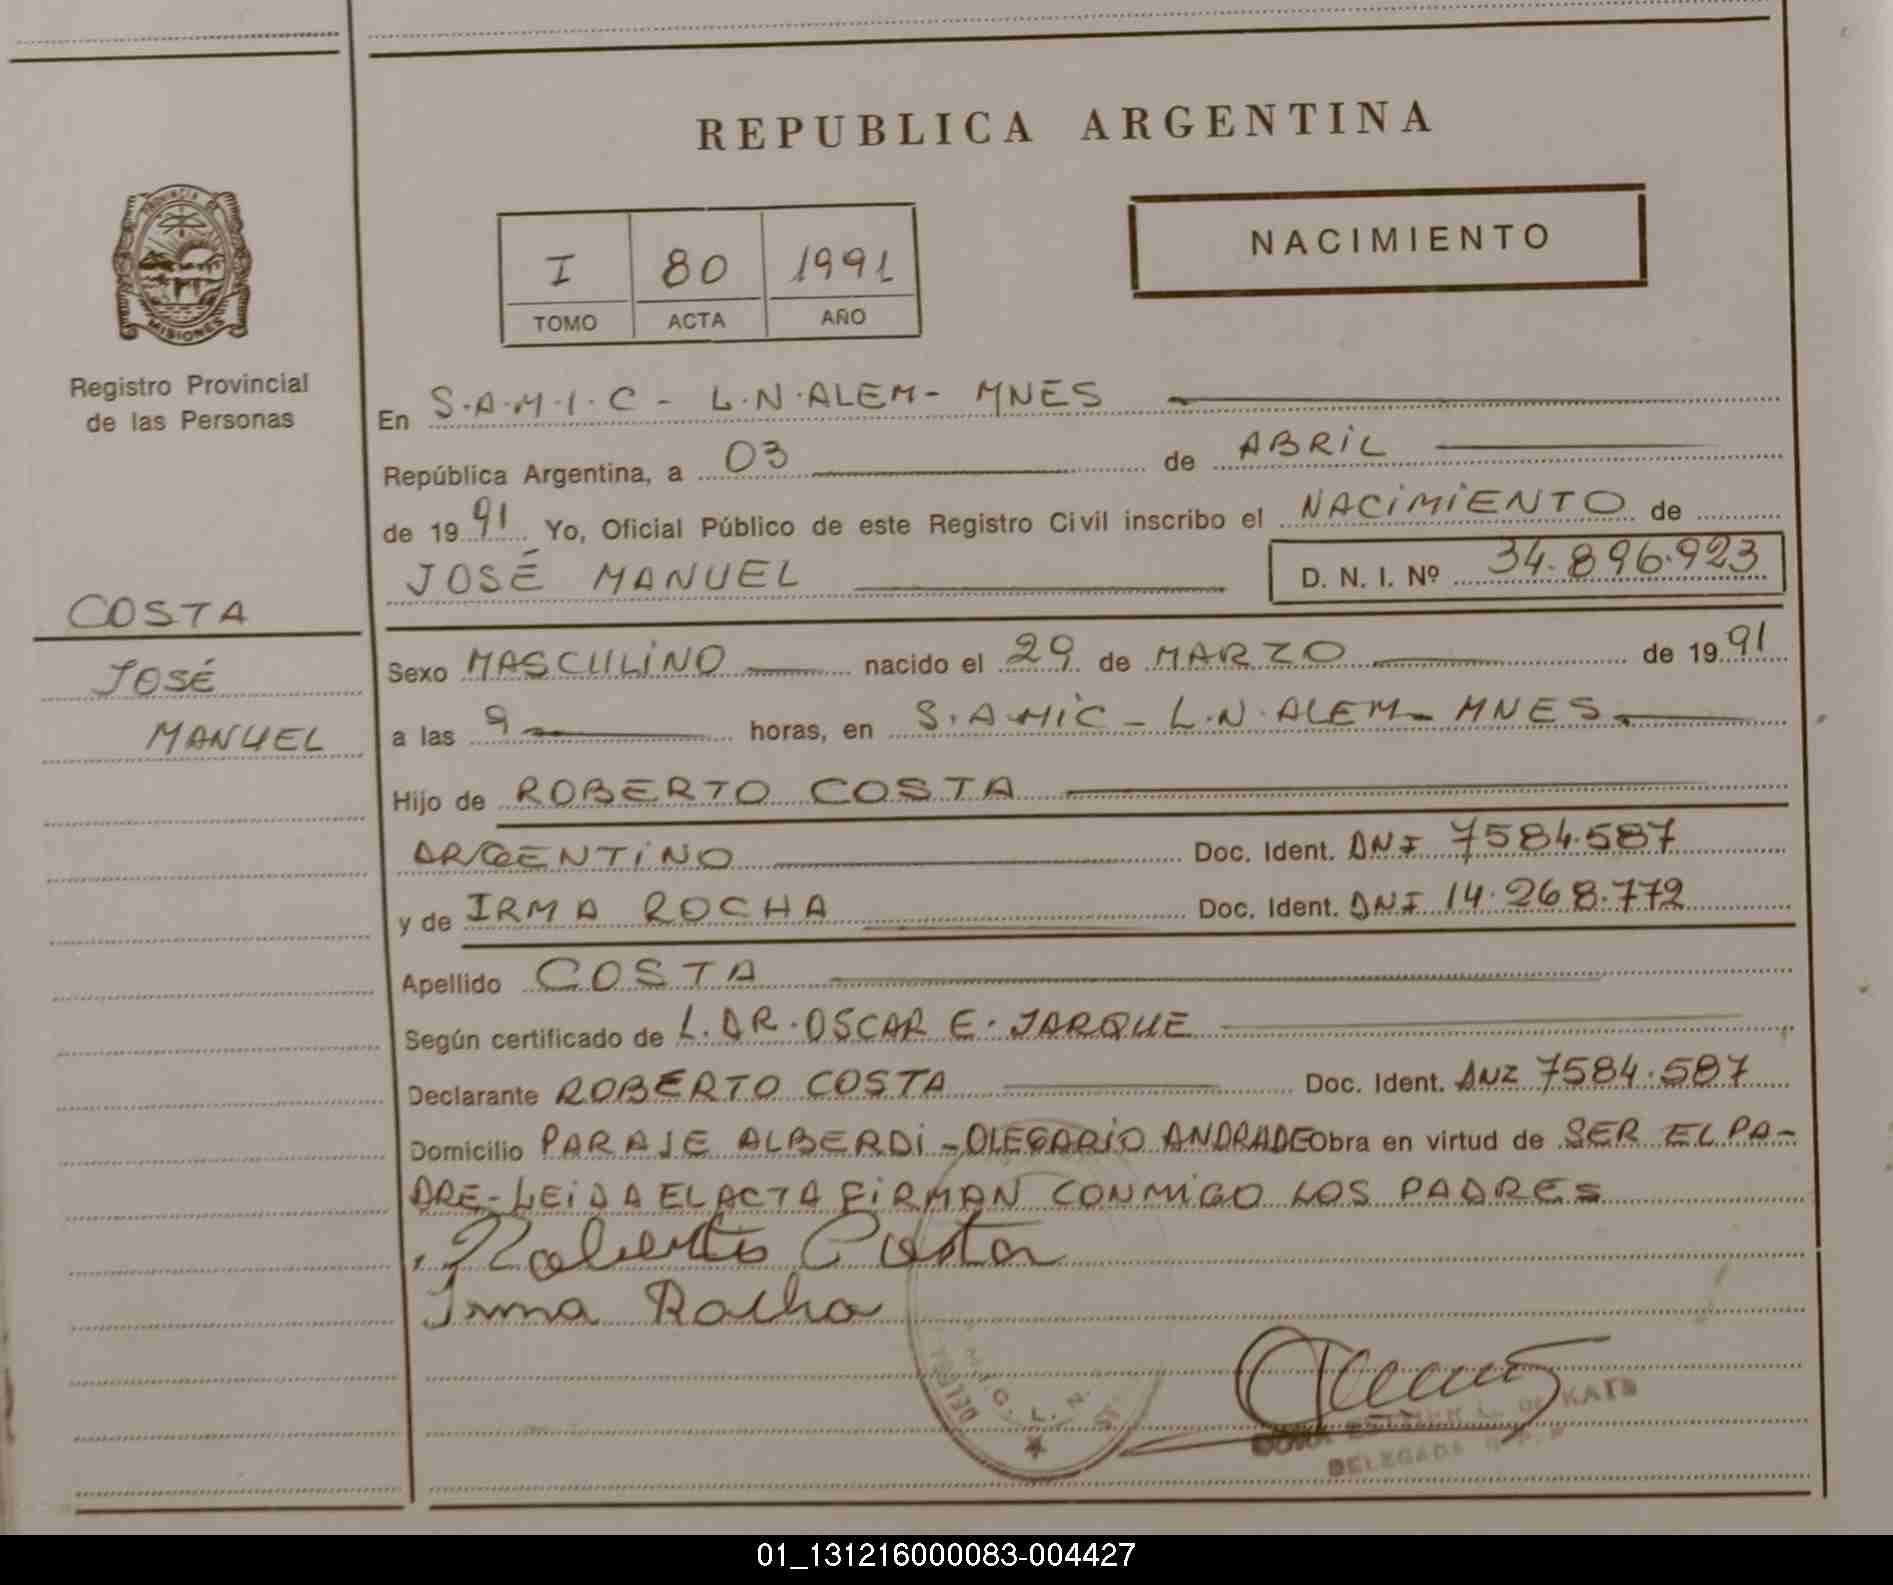 REPUBLICA ARGENTINA
PROVINCIA DE
MISIONES
Registro Provincial
de las Personas
I 80 1991
TOMO ACTA AÑO
NACIMIENTO
En S.A.M.I.C - L.N.ALEM- MNES
República Argentina, a 03 de ABRIL
de 1991 Yo, Oficial Público de este Registro Civil inscribo el NACIMIENTO de
JOSÉ MANUEL D. N. I. Nº 34.896.923
COSTA
JOSÉ
MANUEL
Sexo MASCULINO nacido el 29 de MARZO de 1991
a las 9 horas, en S.A.MIC - L.N.ALEM- MNES
Hijo de ROBERTO COSTA
ARGENTINO Doc. Ident. DNI 7584.587
y de IRMA ROCHA Doc. Ident. DNI 14.268.772
Apellido COSTA
Según certificado de L.DR.OSCAR E. JARQUE
Declarante ROBERTO COSTA Doc. Ident. DNI 7584.587
Domicilio PARAJE ALBERDI-OLEGARIO ANDRADE Obra en virtud de SER EL PA-
DRE-LEIDA EL ACTA FIRMAN CONMIGO LOS PADRES
Roberto Costa
Irma Rocha
L. N.
L. DE KATZ
DELEGADA
01_131216000083-004427